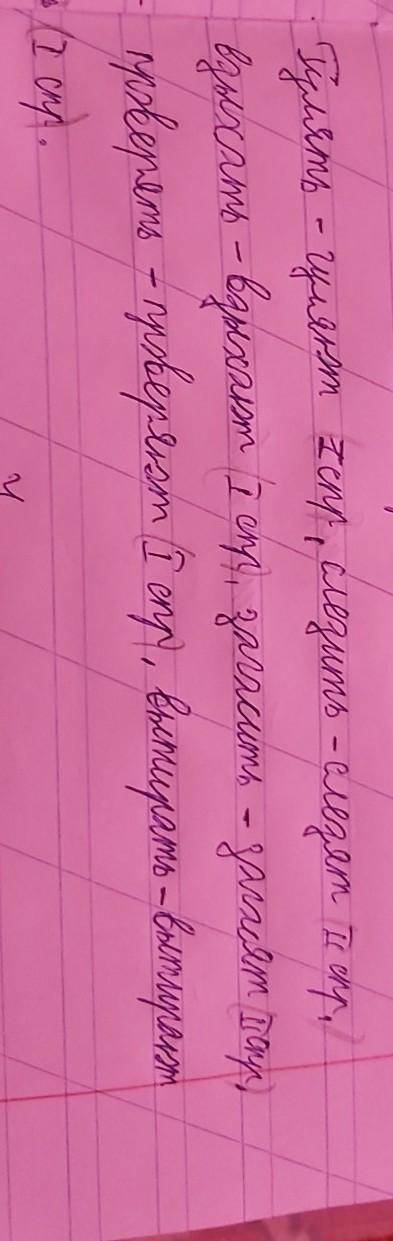 Гулять - гуляют I спр, следить - следят II спр,
вдыхать - вдыхают (I спр), загасить - загасят (II спр),
проверять - проверяют (I спр), вытирать - вытирают
(I спр).